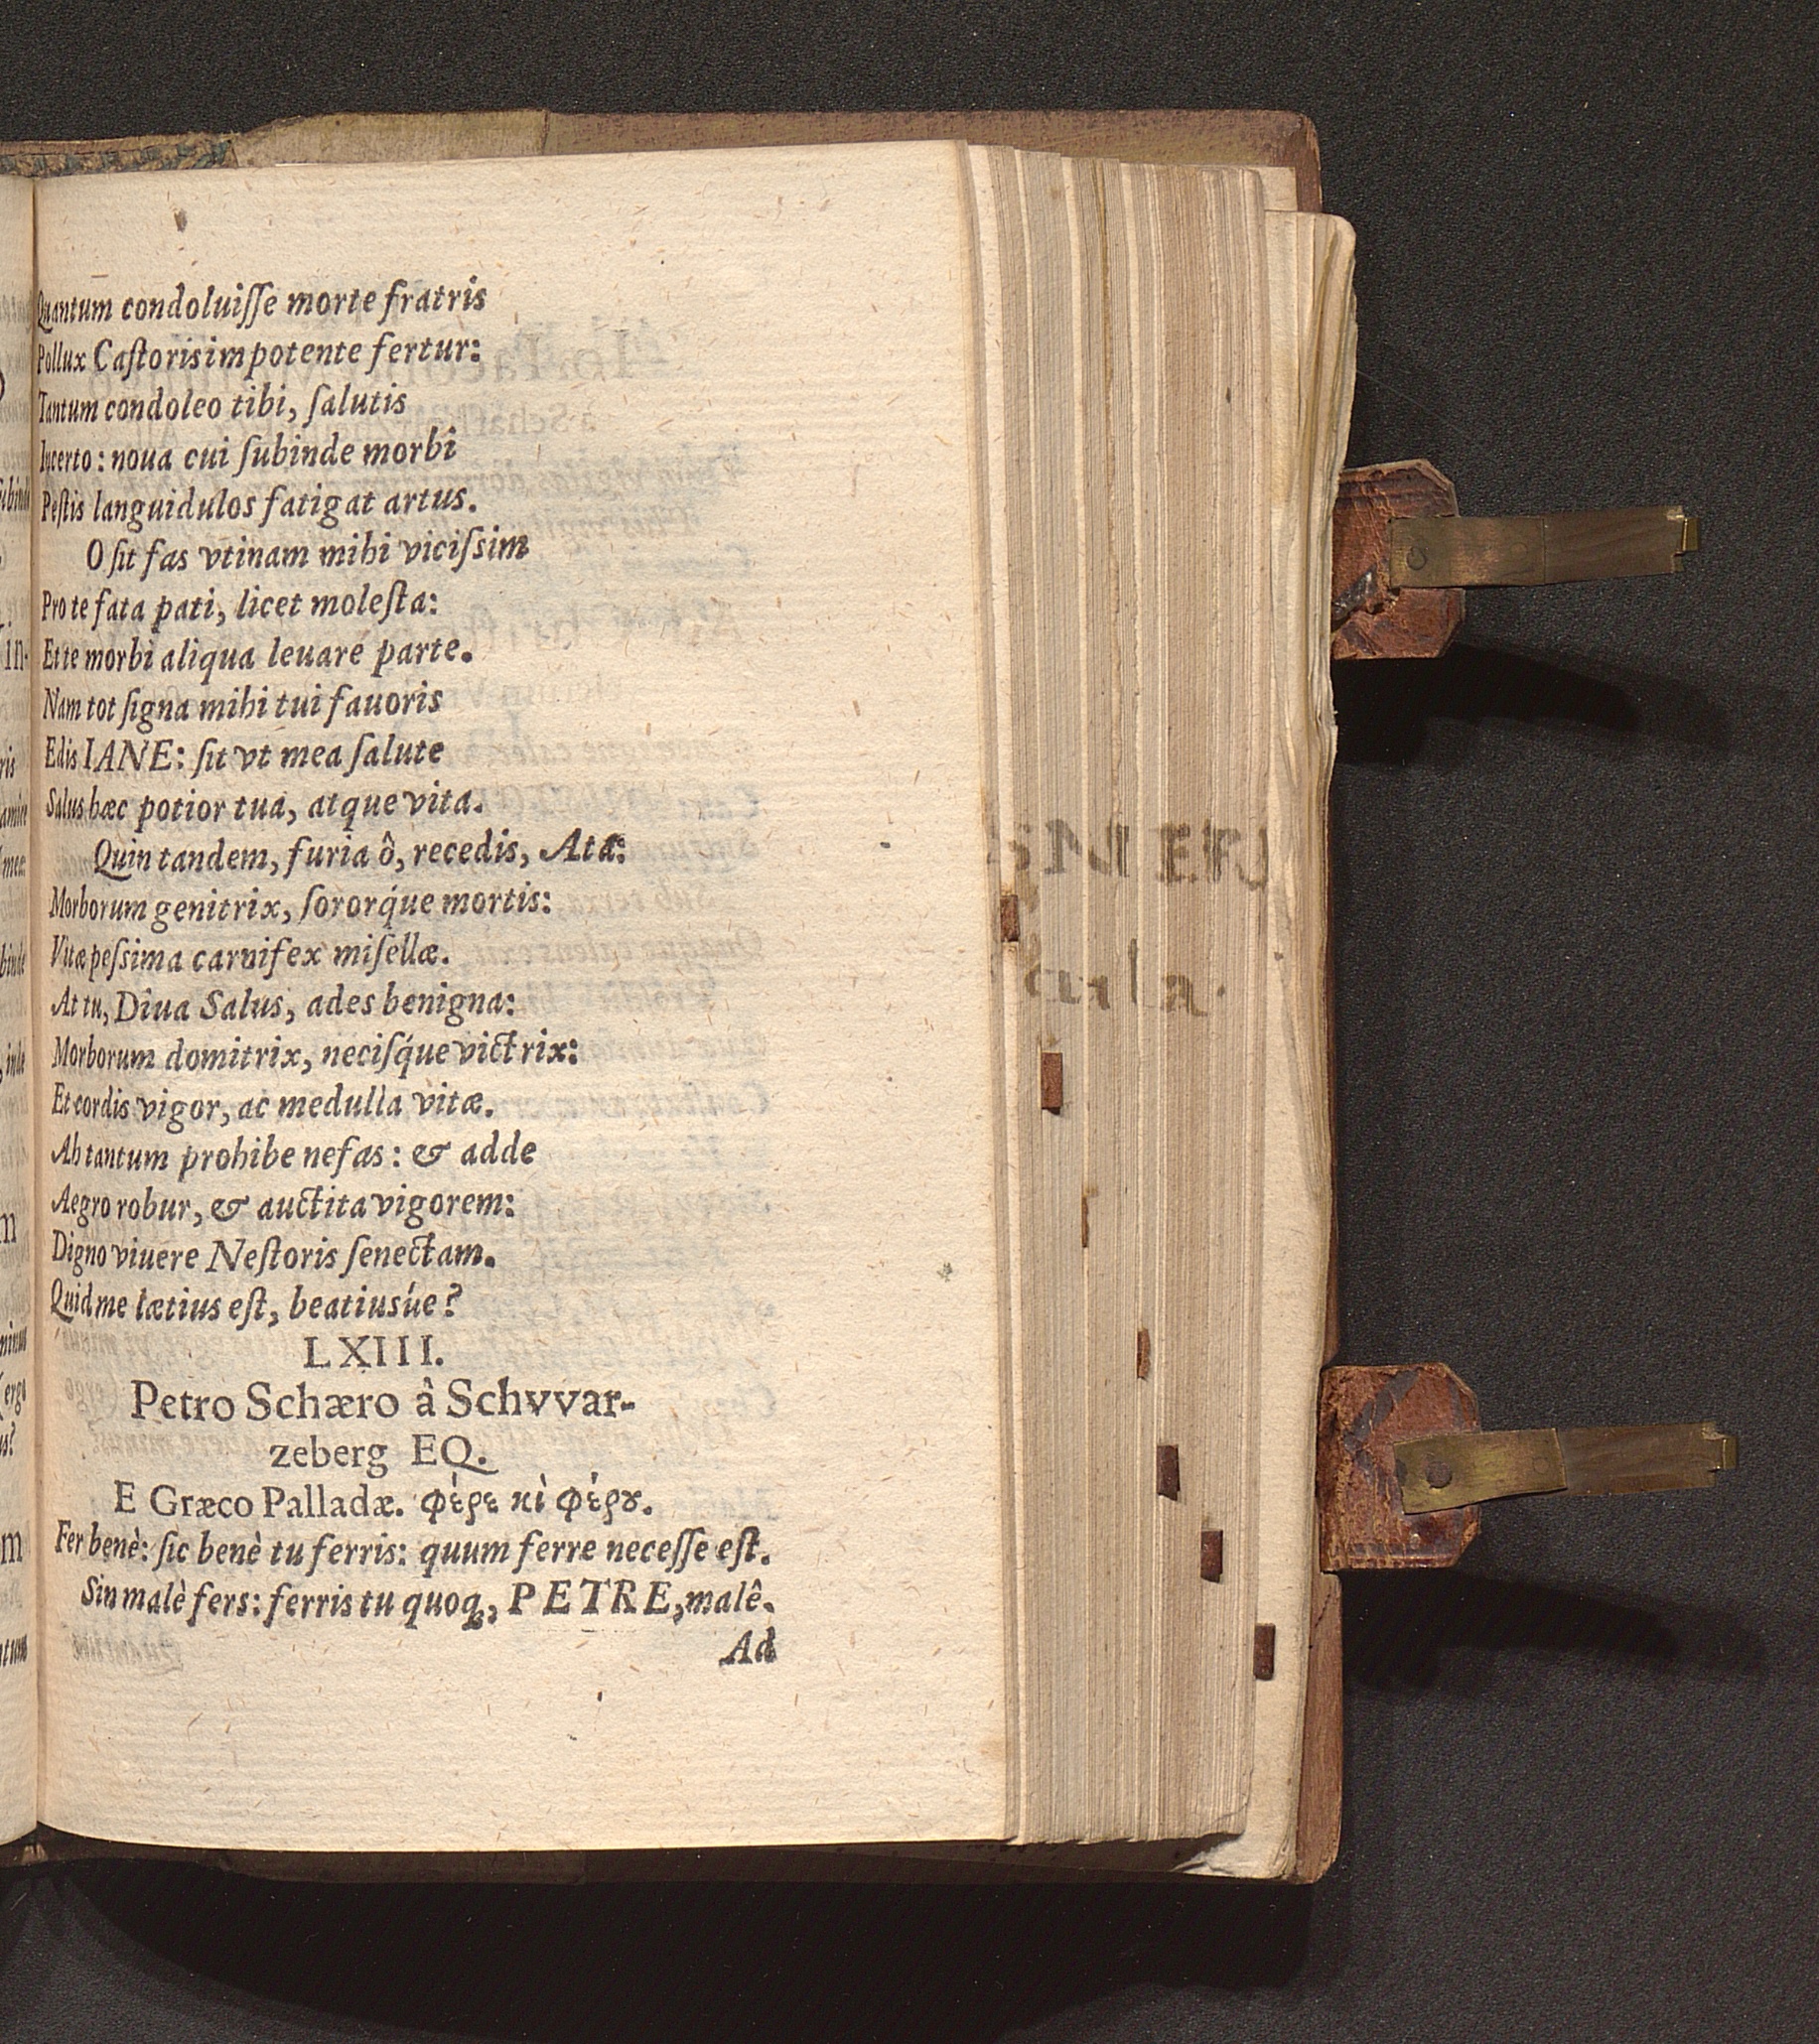 Quantum condoluiſſe morte fratris
Pollux Caſtoris impotente fertur:
Tantum condoleo tibi, ſalutis
Incerto: noua cui ſubinde morbi
Peſtis languidulos fatigat artus.
O ſit fas vtinam mihi viciſsim
Pro te fata pati, licet moleſta:
Et te morbi aliqua leuare parte.
Nam tot ſigna mihi tui fauoris
Edis IANE: ſit vt mea ſalute
Salus hæc potior tua, atque vita.
Quin tandem, furia ô, recedis, Ata:
Morborum genitrix, ſororq́ue mortis:
Vitæ peſsima carnifex miſellæ.
At tu, Diua Salus, ades benigna:
Morborum domitrix, neciſq́ue victrix:
Et cordis vigor, ac medulla vitæ.
Ah tantum prohibe nefas: & adde
Aegro robur, & auctita vigorem:
Digno viuere Neſtoris ſenectam.
Quid me lætius eſt, beatiusúe?
LXIII.
Petro Schæro â Schvvar-
zeberg EQ.
E Græco Palladæ. φέρε κὶ φέρȣ.
Fer benè: ſic benè tu ferris: quum ferre neceſſe eſt.
Sin malè fers: ferris tu quoq;, PETRE, malê.
Ad